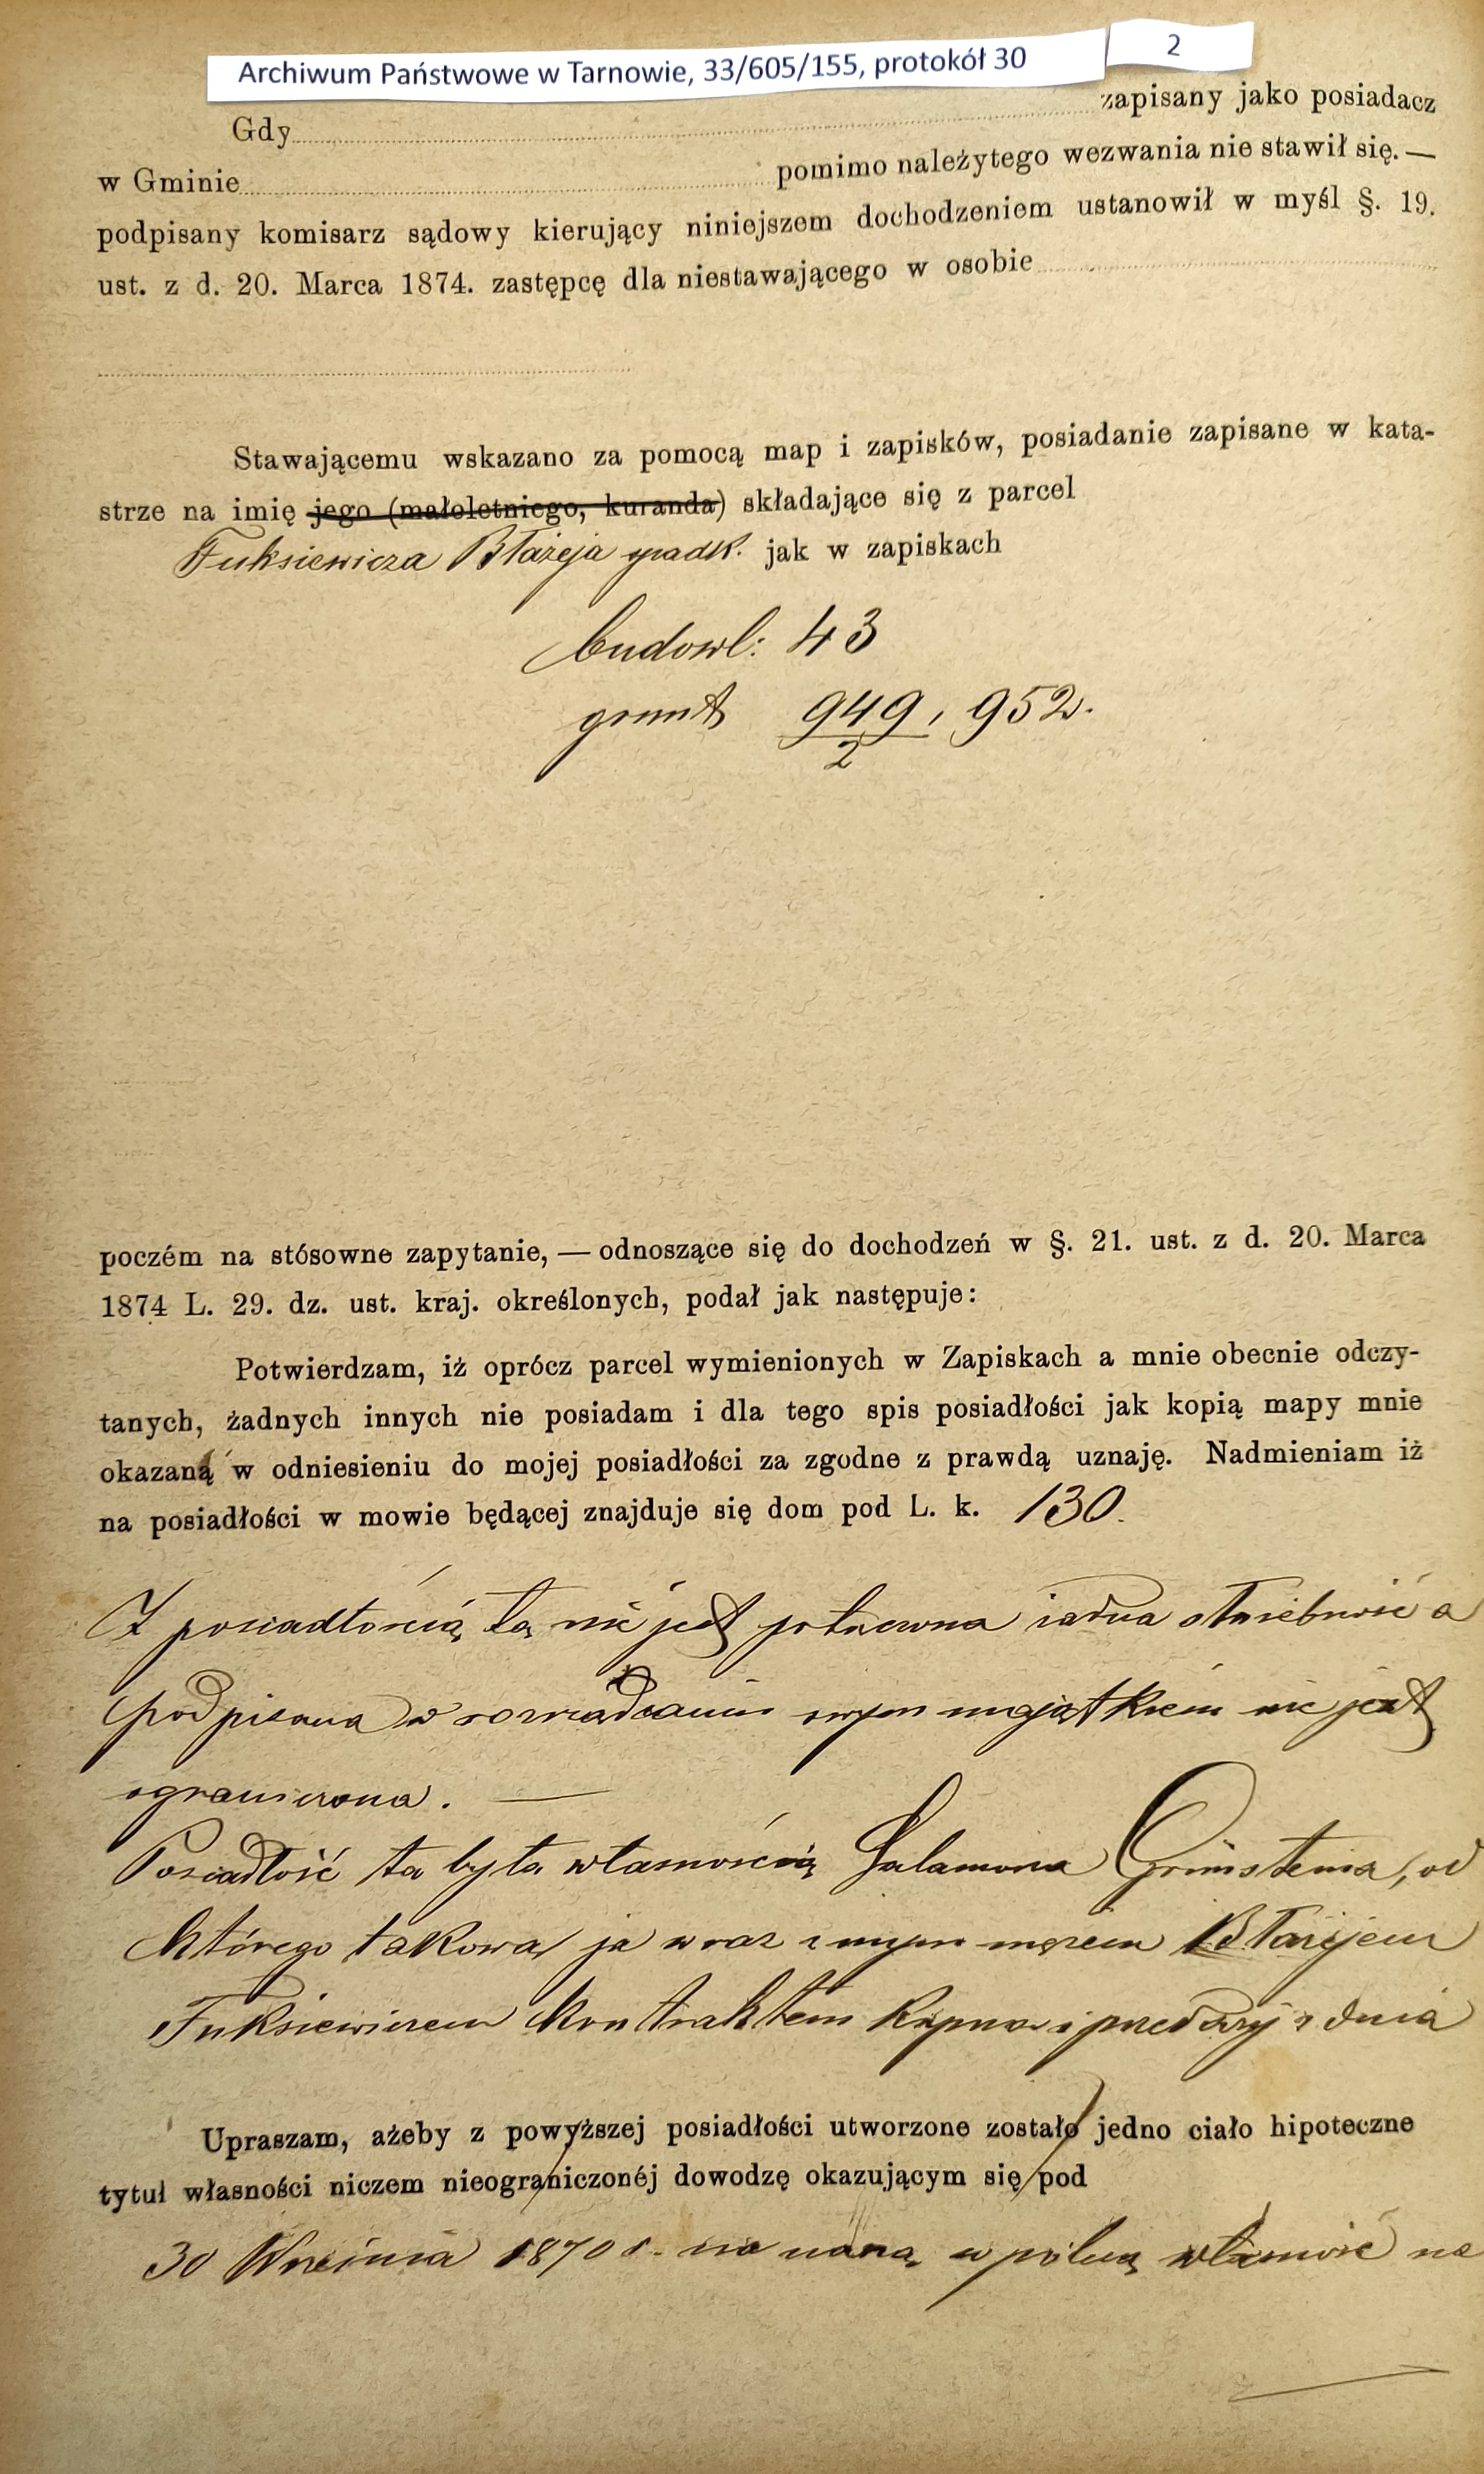 Archiwum Państwowe w Tarnowie, 33/605/155, protokół 30
2
Gdy zapisany jako posiadacz
w Gminie pomimo należytego wezwania nie stawił się. —
podpisany komisarz sądowy kierujący niniejszem dochodzeniem ustanowił w myśl §. 19.
ust. z d. 20. Marca 1874. zastępcę dla niestawającego w osobie
Stawającemu wskazano za pomocą map i zapisków, posiadanie zapisane w kata-
strze na imię jego (małoletniego, kuranda) składające się z parcel
Fuksiewicza Błażeja spadk. jak w zapiskach
budowl: 43
grunt 949/2, 952.
poczém na stósowne zapytanie, — odnoszące się do dochodzeń w §. 21. ust. z d. 20. Marca
1874 L. 29. dz. ust. kraj. określonych, podał jak następuje:
Potwierdzam, iż oprócz parcel wymienionych w Zapiskach a mnie obecnie odczy-
tanych, żadnych innych nie posiadam i dla tego spis posiadłości jak kopią mapy mnie
okazaną w odniesieniu do mojej posiadłości za zgodne z prawdą uznaję. Nadmieniam iż
na posiadłości w mowie będącej znajduje się dom pod L. k. 130.
Z posiadłością tą nie jest połączona żadna służebność a
podpisana w rozrządzaniu swym majątkiem nie jest
ograniczona. —
Posiadłość ta była własnością Salamona Grünsteina, od
którego takową ja wraz z mym mężem Błażejem
Fuksiewiczem kontraktem kupna i przedaży z dnia
Upraszam, ażeby z powyższej posiadłości utworzone zostało jedno ciało hipoteczne
tytuł własności niczem nieograniczonéj dowodzę okazującym się pod
30 Września 1870 r. na naszą wspólną własność na